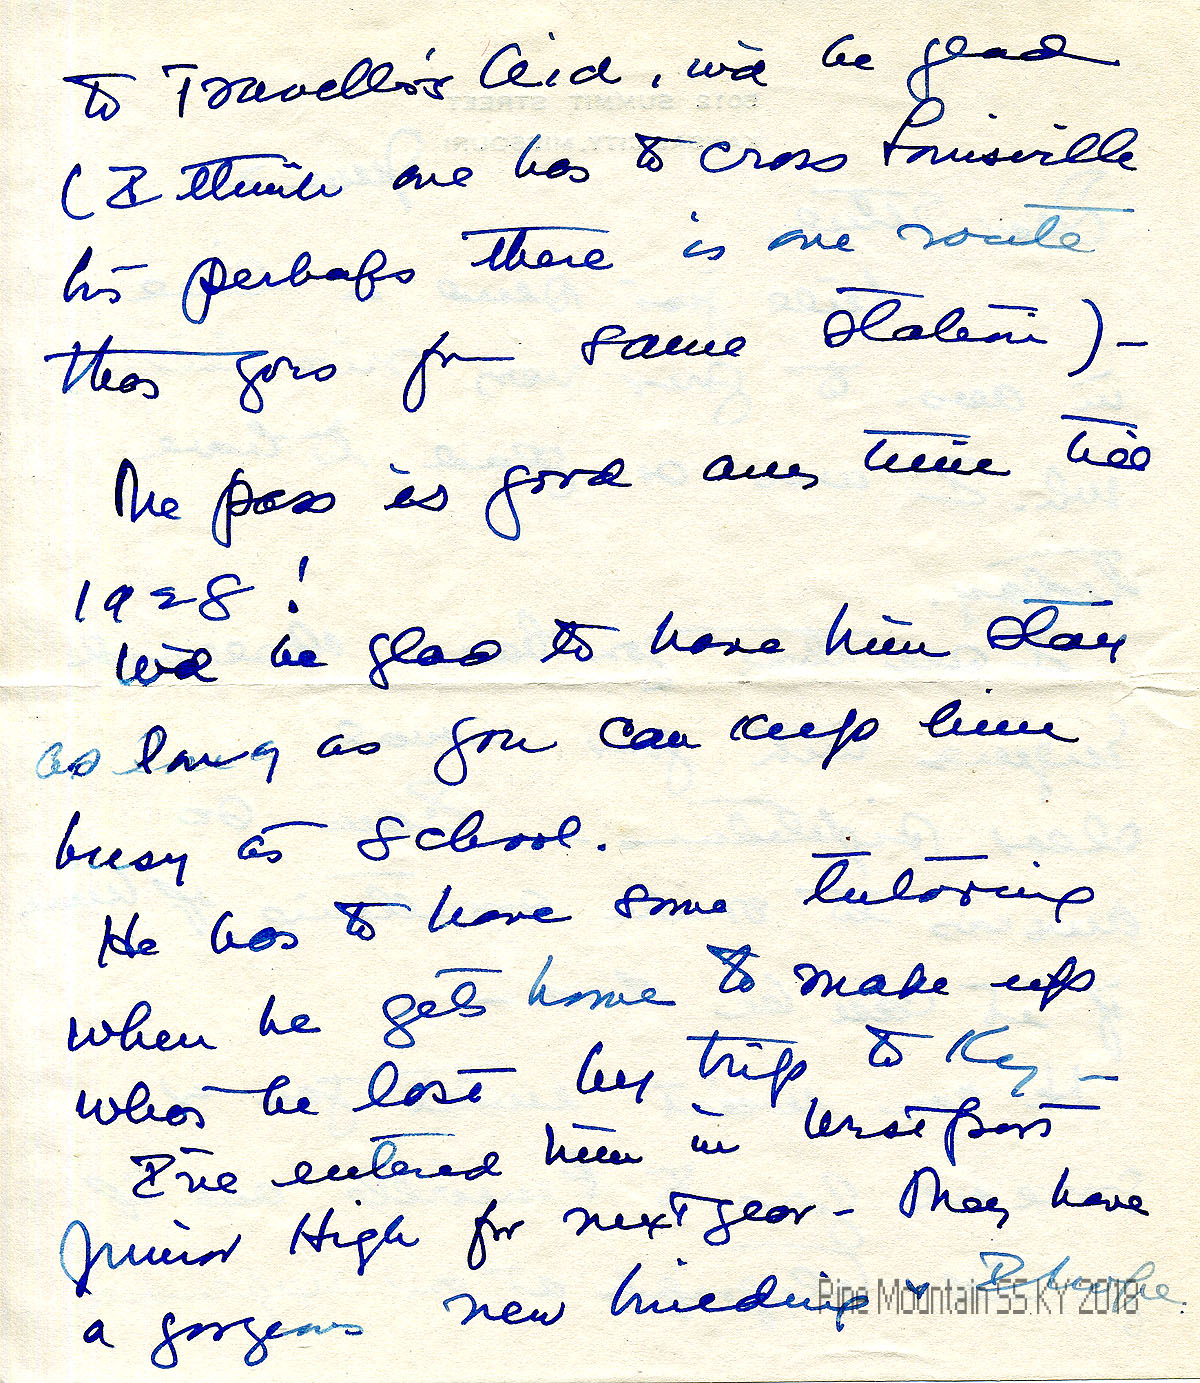 to Travellers Aid, we'd be glad
(I think one has to cross Louisville
but perhaps there is one route
that goes from same station) -
The pass is good any time till
1928!
We'd be glad to have him stay
as long as you can keep him
busy at school.
He has to have some tutoring
when he gets home to make up
what he lost by trip to Ky -
I've entered him in Westport
Junior High for next year - They have
a gorgeous new building & I hope
Pine Mountain SS KY 2018